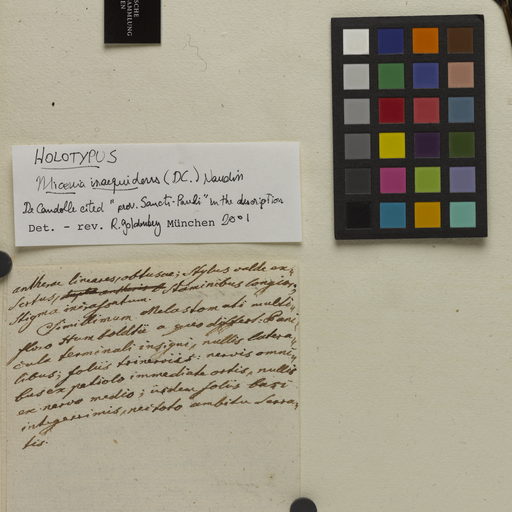 HOLOTYPUS
Miconia inaequidens (DC.) Naudin
De Candolle cited "prov. Sancti-Pauli" in the description
Det. - rev. R. Goldenberg München 2001
antherae lineares, obtusae; Stylus valde ex-
sertus, staminibus longior,
stigma inifatum.
Simillimum Melastomati multi-
floro Humboldtii a quo differt: Pani-
cula terminali insigni, nullis latera-
libus; foliis trinerviis: nervis omni-
bus ex petiolo immediate ortis, nullis
ex nervo medio; iisdem foliis basi
integerrimis, nec toto ambitu serra-
tis.